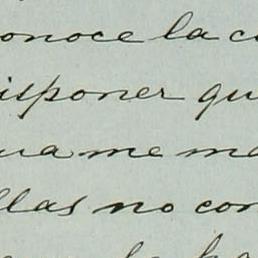 onoce la c
isponer qu
ua me ma
llas no con